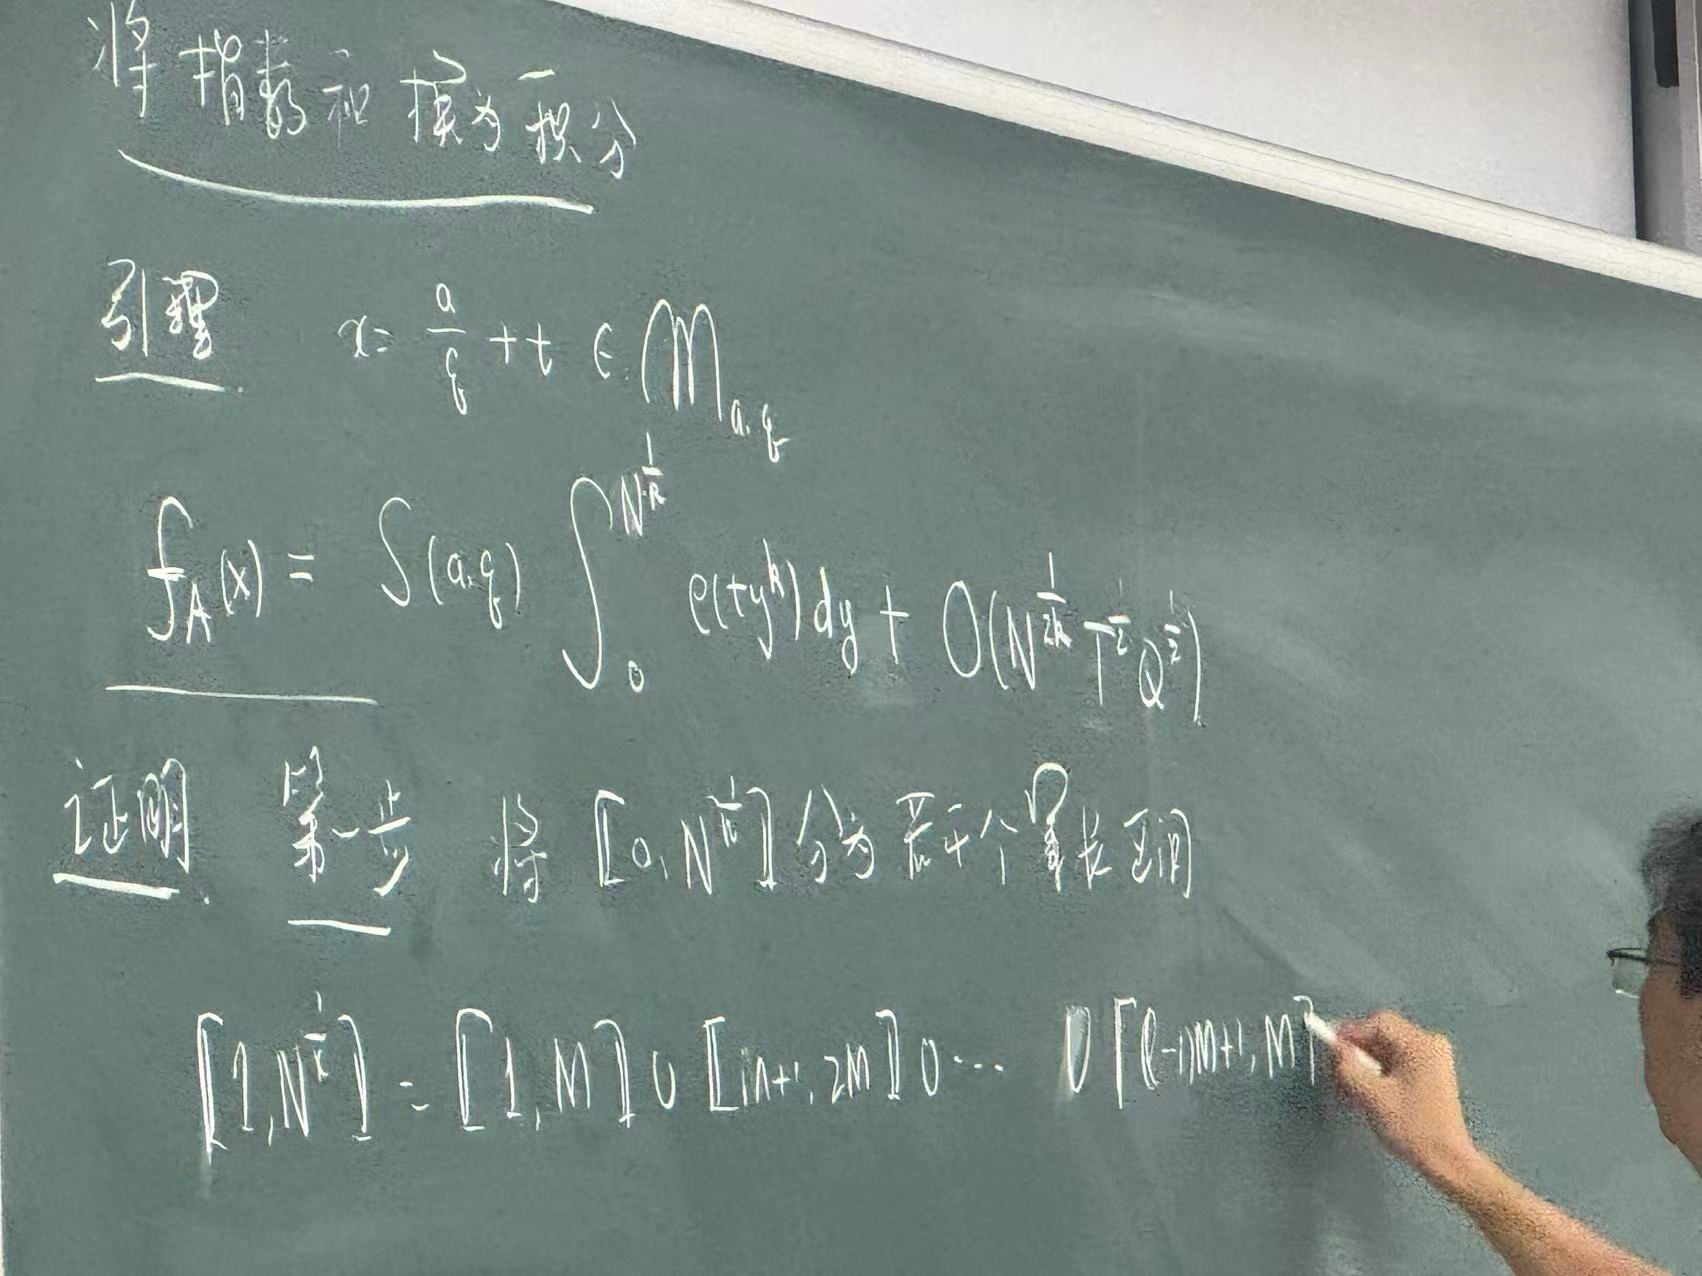 将指数和换为积分
引理 x = \frac{a}{q} + t ∈ M_{a,q}
f_A(x) = S(a,q) \int_0^{N^{\frac{1}{k}}} e(ty^k)dy + O(N^{\frac{1}{2k}} T^{\frac{1}{2}} Q^{\frac{1}{2}})
证明 第一步 将 [0, N^{\frac{1}{k}}] 分为若干个等长区间
[1, N^{\frac{1}{k}}] = [1, M] ∪ [M+1, 2M] ∪ ⋯ ∪ [(l-1)M+1, M]